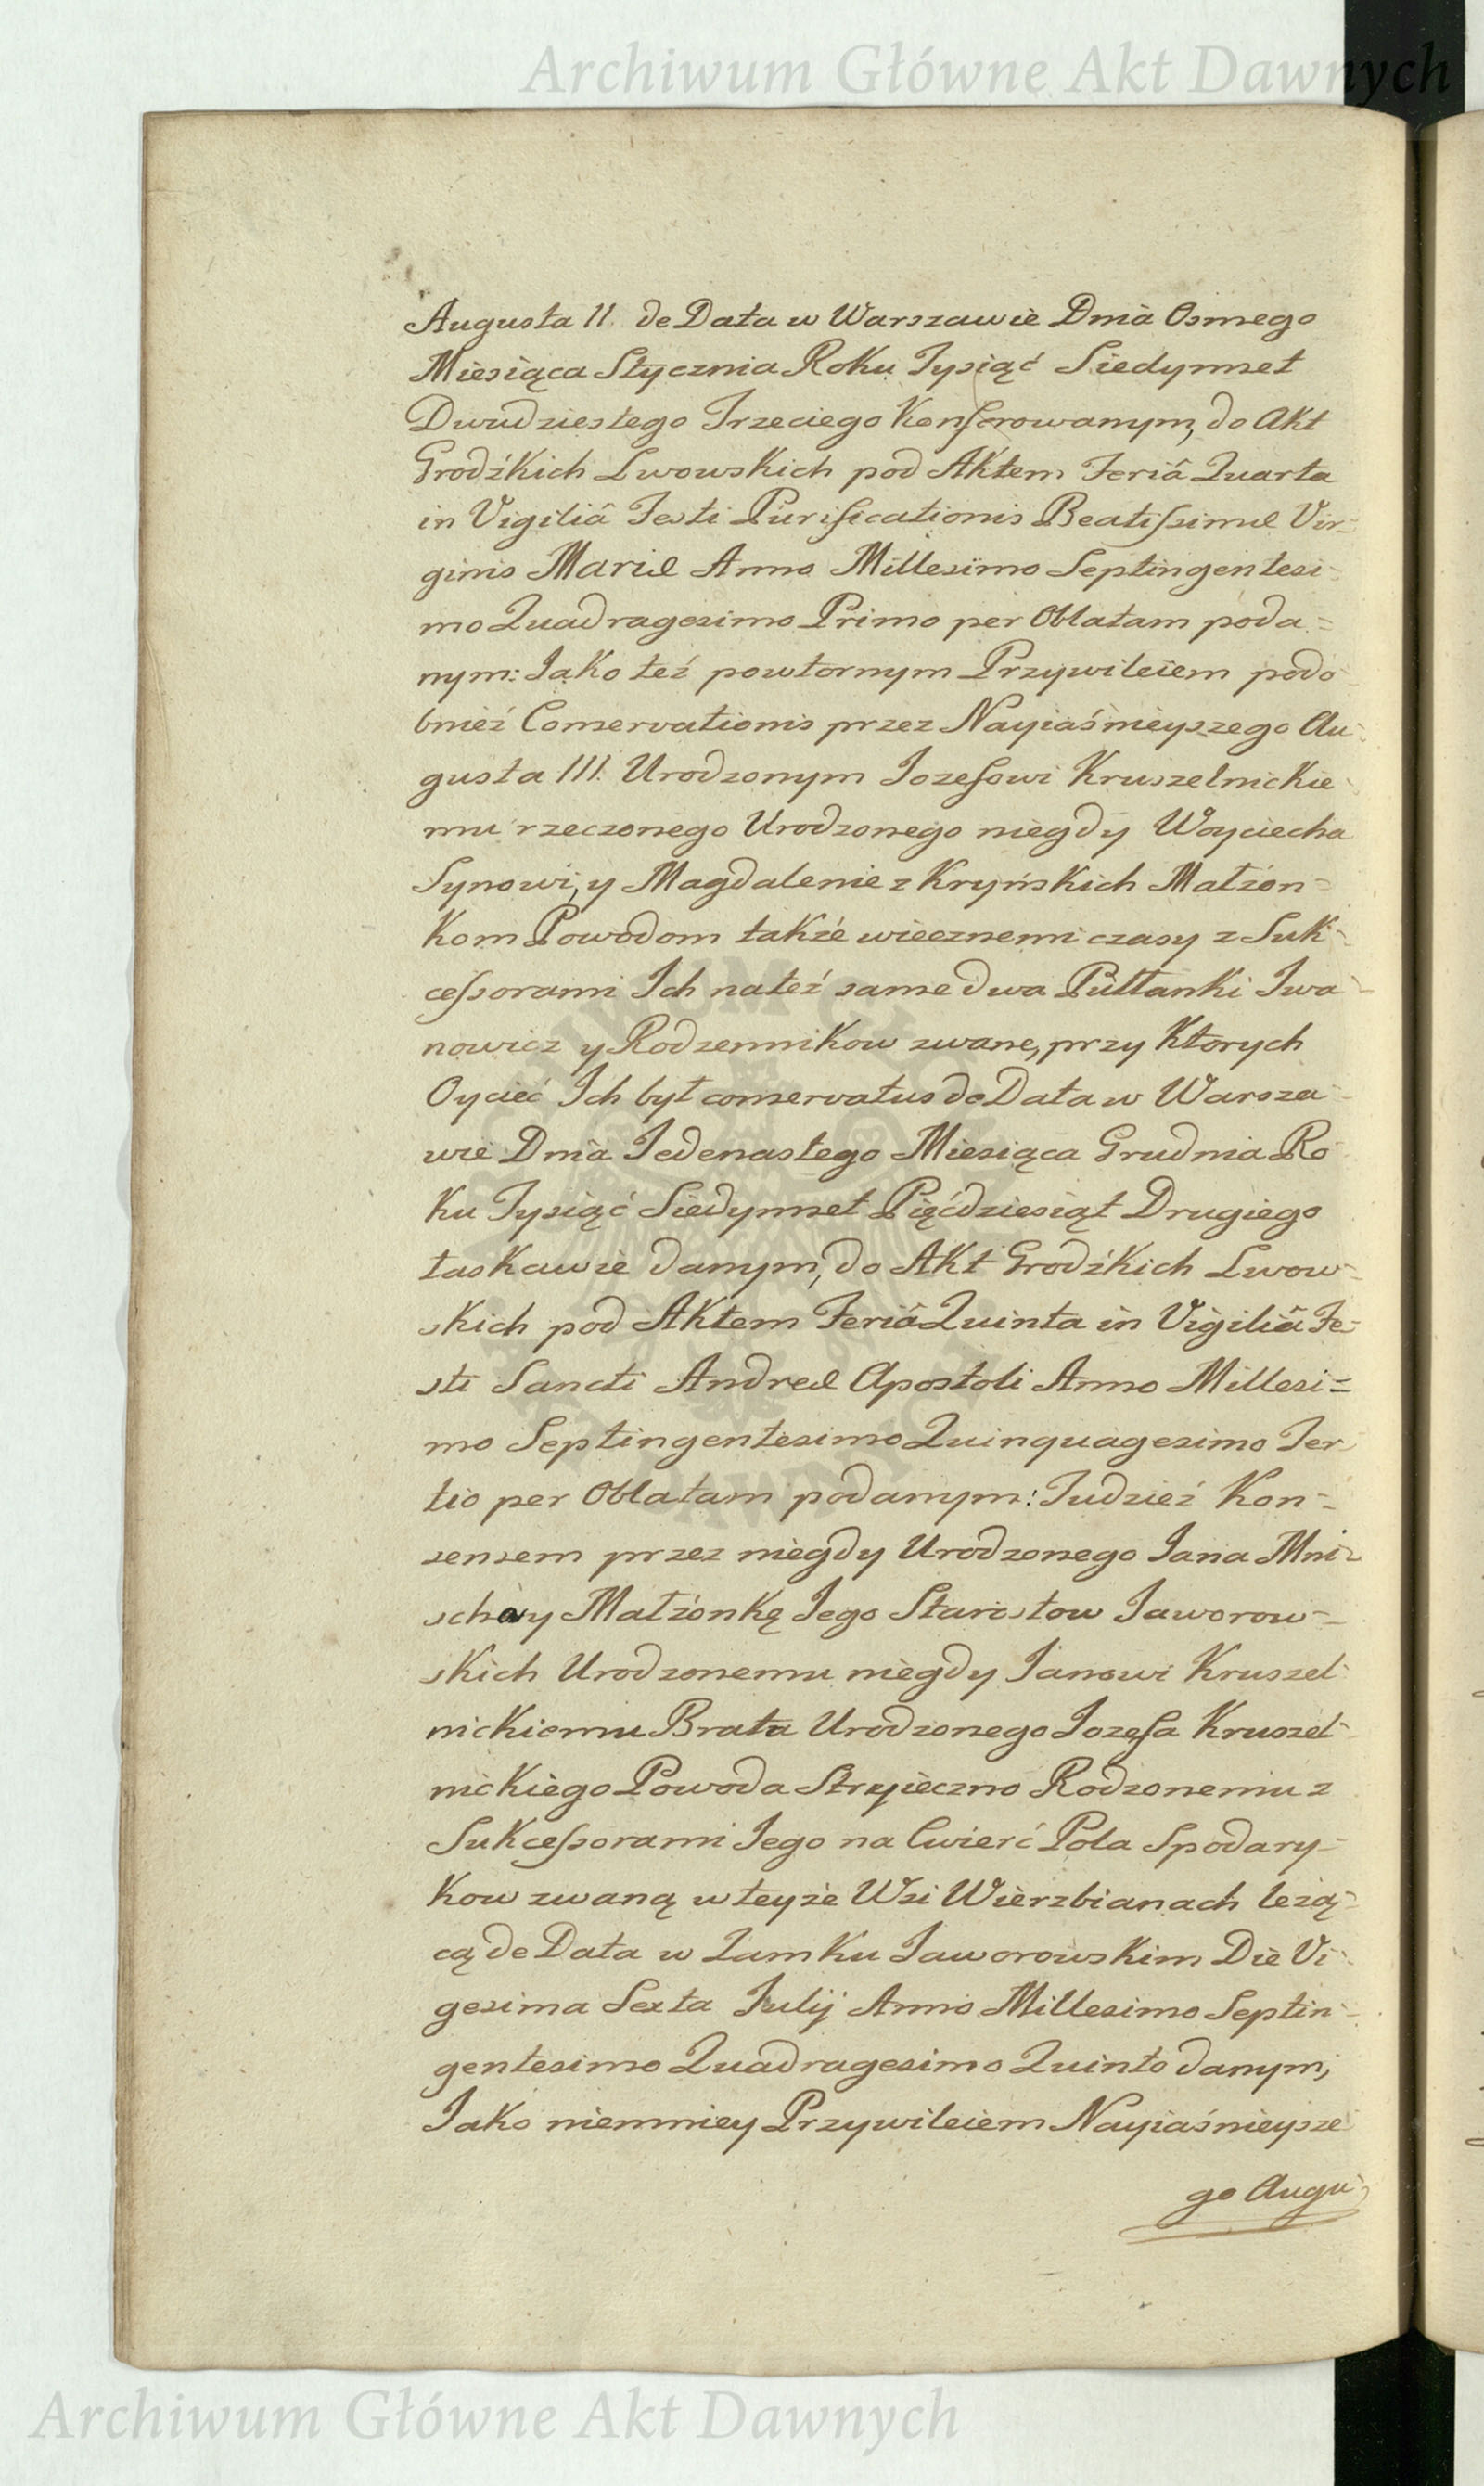 Archiwum Główne Akt Dawnych
Augusta II. de Data w Warszawie Dnia Osmego
Miesiąca Stycznia Roku Tysiąć Siedymset
Dwudziestego Trzeciego Konferowanym, do Akt
Grodźkich Lwowskich pod Aktem Feriâ Quarta
in Vigiliâ Festi Purificationis Beatissimæ Vir-
ginis Mariæ Anno Millesimo Septingentesi-
mo Quadragesimo Primo per Oblatam poda=
nym: Jako też powtornym Przywileiem podo-
bnież Conservationis przez Nayiaśnieyszego Au-
gusta III. Urodzonym Jozefowi Kruszelnickie-
mu rzeczonego Urodzonego niegdy Woyciecha
Synowi, y Magdalenie z Kryńskich Małżon=
kom Powodom także wiecznemi czasy z Suk-
cessorami Ich na też same dwa Pułłanki Iwa-
nowicz y Rodzennikow zwane, przy Ktorych
Oycieć Ich był conservatus de Data w Warsza-
wie Dnia Jedenastego Miesiąca Grudnia Ro-
ku Tysiąć Siedymset Pięćdziesiąt Drugiego
łaskawie danym, do Akt Grodźkich Lwow-
skich pod Aktem Feriâ Quinta in Vigiliâ Fe-
sti Sancti Andreæ Apostoli Anno Millesi=
mo Septingentesimo Quinquagesimo Ter-
tio per Oblatam podanym: Tudzież Kon-
sensem przez niegdy Urodzonego Jana Mni-
scha y Małżonkę Jego Starostow Jaworow-
skich Urodzonemu niegdy Janowi Kruszel-
nickiemu Brata Urodzonego Jozefa Kruszel-
nickiego Powoda Stryieczno Rodzonemu z
Sukcessorami Jego na Cwierć Pola Spodary-
kow zwaną w teyże Wsi Wierzbianach leżą-
cą de Data w Zamku Jaworowskim Die Vi-
gesima Sexta Julij Anno Millesimo Septin-
gentesimo Quadragesimo Quinto danym,
Jako niemniey Przywileiem Nayiaśnieysze
go Augu-
Archiwum Główne Akt Dawnych